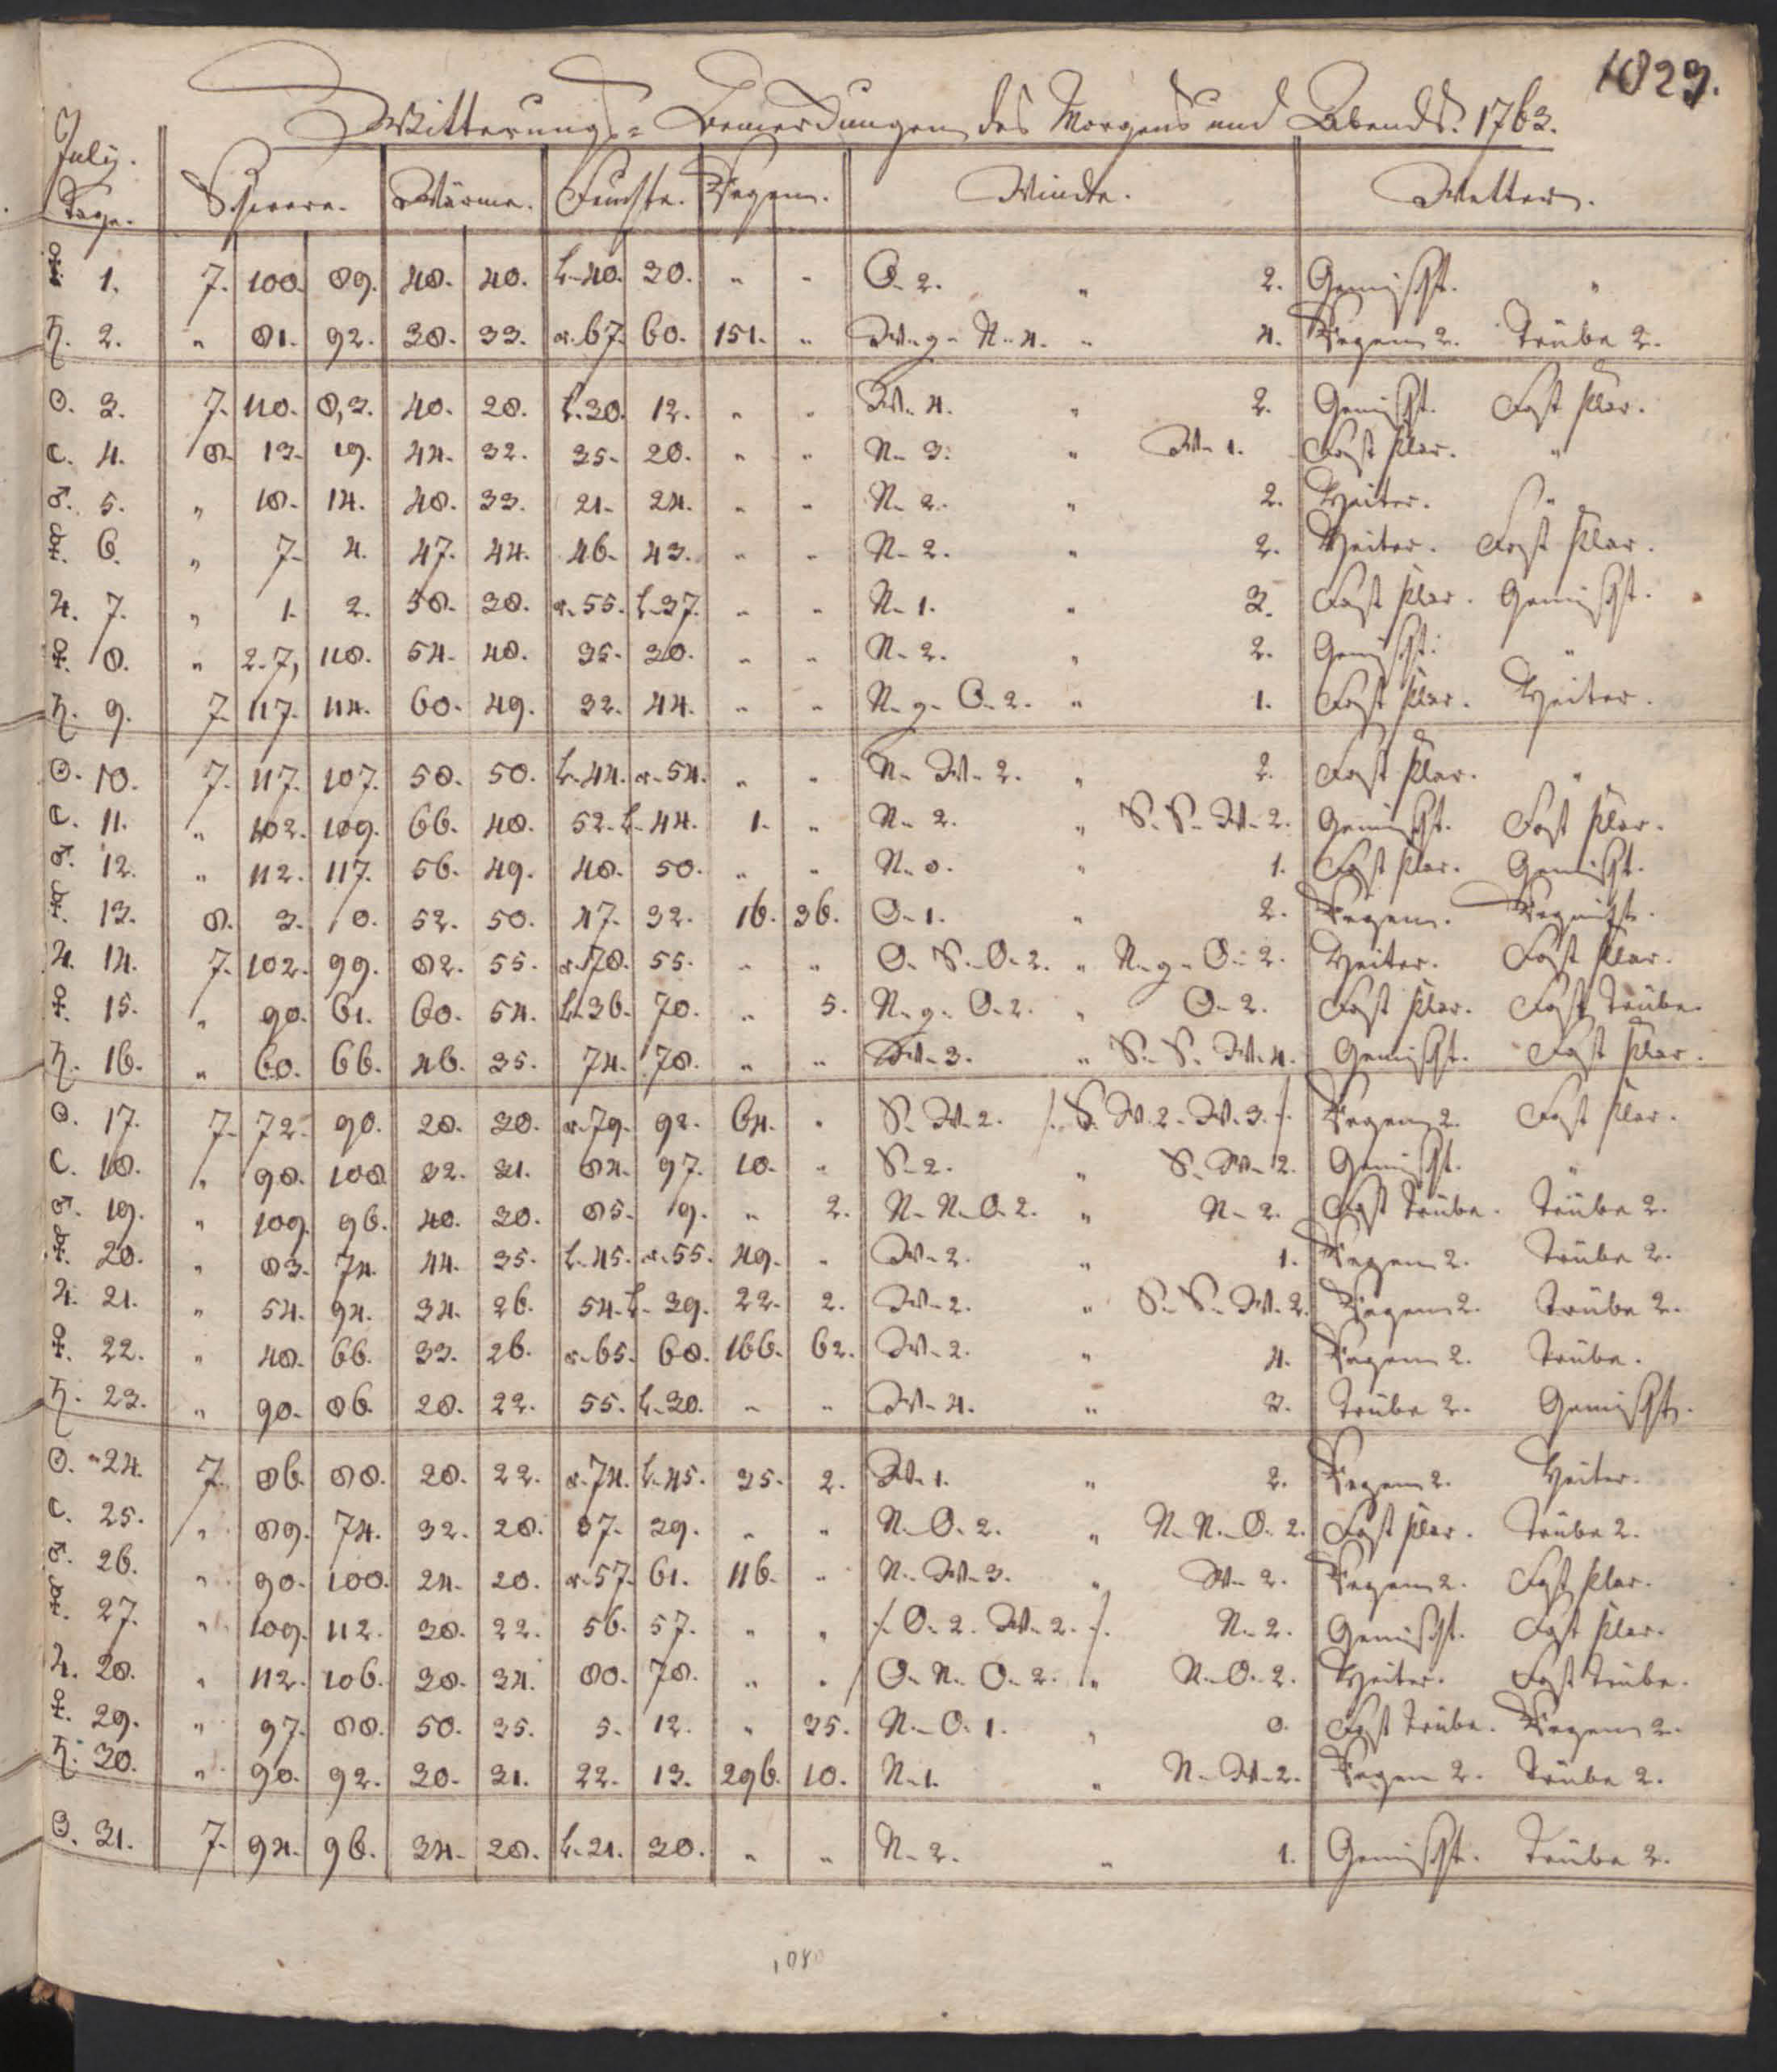 1829.
Witterungs-Bemerckungen des Morgens und Abends. 1763.
July.
Tage. Schwere. Wärme. Feuchte. Regen. Winde. Wetter.
♀ 1. 7. 100. 89. 48. 40. L-40. 30. " " O. 2. " 2. Gemischt. "
♄. 2. " 81. 92. 38. 33. r. 67. 60. 151. " W. g. N. 4. " 4. Regen 2. Trübe 2.
☉. 3. 7. 110. 8,3. 40. 28. L. 30. 12. " " W. 4. " 2. Gemischt. Fast klar.
☾. 4. 8. 13. 19. 44. 32. 35. 20. " " N. 3. " W. 1. Fast klar. "
♂. 5. " 18. 14. 48. 33. 21. 24. " " N. 2. " 2. Heiter. "
☿. 6. " 7. 4. 47. 44. 46. 43. " " N. 2. " 2. Heiter. Fast klar.
♃. 7. " 1. 2. 58. 38. r. 55. L. 37. " " N. 1. " 3. Fast klar. Gemischt.
♀. 8. " 2. 7, 118. 54. 48. 35. 30. " " N. 2. " 2. Gemischt. "
♄. 9. 7. 117. 114. 60. 49. 32. 44. " " N. g. O. 2. " 1. Fast klar. Heiter.
☉. 10. 7. 117. 107. 58. 50. L. 44. r. 54. " " N. W. 2. " 2. Fast klar. "
☾. 11. " 102. 109. 66. 48. 52. L. 44. 1. " N. 2. " S. S. W. 2. Gemischt. Fast klar.
♂. 12. " 112. 117. 56. 49. 48. 50. " " N. 0. " 1. Fast klar. Gemischt.
☿. 13. 8. 3. 0. 52. 50. 47. 32. 16. 36. O. 1. " 2. Regen. Regnicht.
♃. 14. 7. 102. 99. 82. 55. r. 78. 55. " " O. S. O. 2. " N. g. O. 2. Heiter. Fast klar.
♀. 15. " 90. 61. 60. 54. L. 36. 70. " 5. N. g. O. 2. " O. 2. Fast klar. Fast Trübe.
♄. 16. " 60. 66. 46. 35. 74. 78. " " W. 3. " S. S. W. 4. Gemischt. Fast klar.
☉. 17. 7. 72. 90. 28. 30. r. 79. 92. 64. " S. W. 2. /. S. W. 2. W. 3. /. Regen 2. Fast klar.
☾. 18. " 98. 108. 32. 31. 84. 97. 10. " S. 2. " S. W. 2. Gemischt. "
♂. 19. " 109. 96. 40. 30. 85. 19. " 2. N. N. O. 2. " N. 2. Fast Trübe. Trübe 2.
☿. 20. " 83. 74. 44. 35. L. 45. r. 55. 49. " W. 2. " 1. Regen 2. Trübe 2.
♃. 21. " 54. 94. 34. 26. 54. L. 39. 22. 2. W. 2. " S. S. W. 2. Regen 2. Trübe 2.
♀. 22. " 48. 66. 33. 26. r. 65. 68. 166. 62. W. 2. " 4. Regen 2. Trübe.
♄. 23. " 90. 86. 28. 22. 55. L. 30. " " W. 4. " 3. Trübe 2. Gemischt.
☉. 24. 7. 86. 88. 28. 22. r. 74. L. 45. 35. 2. W. 1. " 2. Regen 2. Heiter.
☾. 25. " 89. 74. 32. 28. 37. 39. " " N. O. 2. " N. N. O. 2. Fast klar. Trübe 2.
♂. 26. " 90. 100. 24. 20. r. 57. 61. 116. " N. W. 3. " W. 2. Regen 2. Fast klar.
☿. 27. " 109. 112. 30. 22. 56. 57. " " /. O. 2. W. 2. /. N. 2. Gemischt. Fast klar.
♃. 28. " 112. 106. 38. 34. 80. 78. " " O. N. O. 2. " N. O. 2. Heiter. Fast Trübe.
♀. 29. " 97. 88. 50. 35. 5. 12. " 35. N. O. 1. " 0. Fast Trübe. Regen 2.
♄. 30. " 90. 92. 30. 31. 22. 13. 296. 10. N. 1. " N. W. 2. Regen 2. Trübe 2.
☉. 31. 7. 94. 96. 34. 28. L. 21. 30. " " N. 2. " 1. Gemischt. Trübe 2.